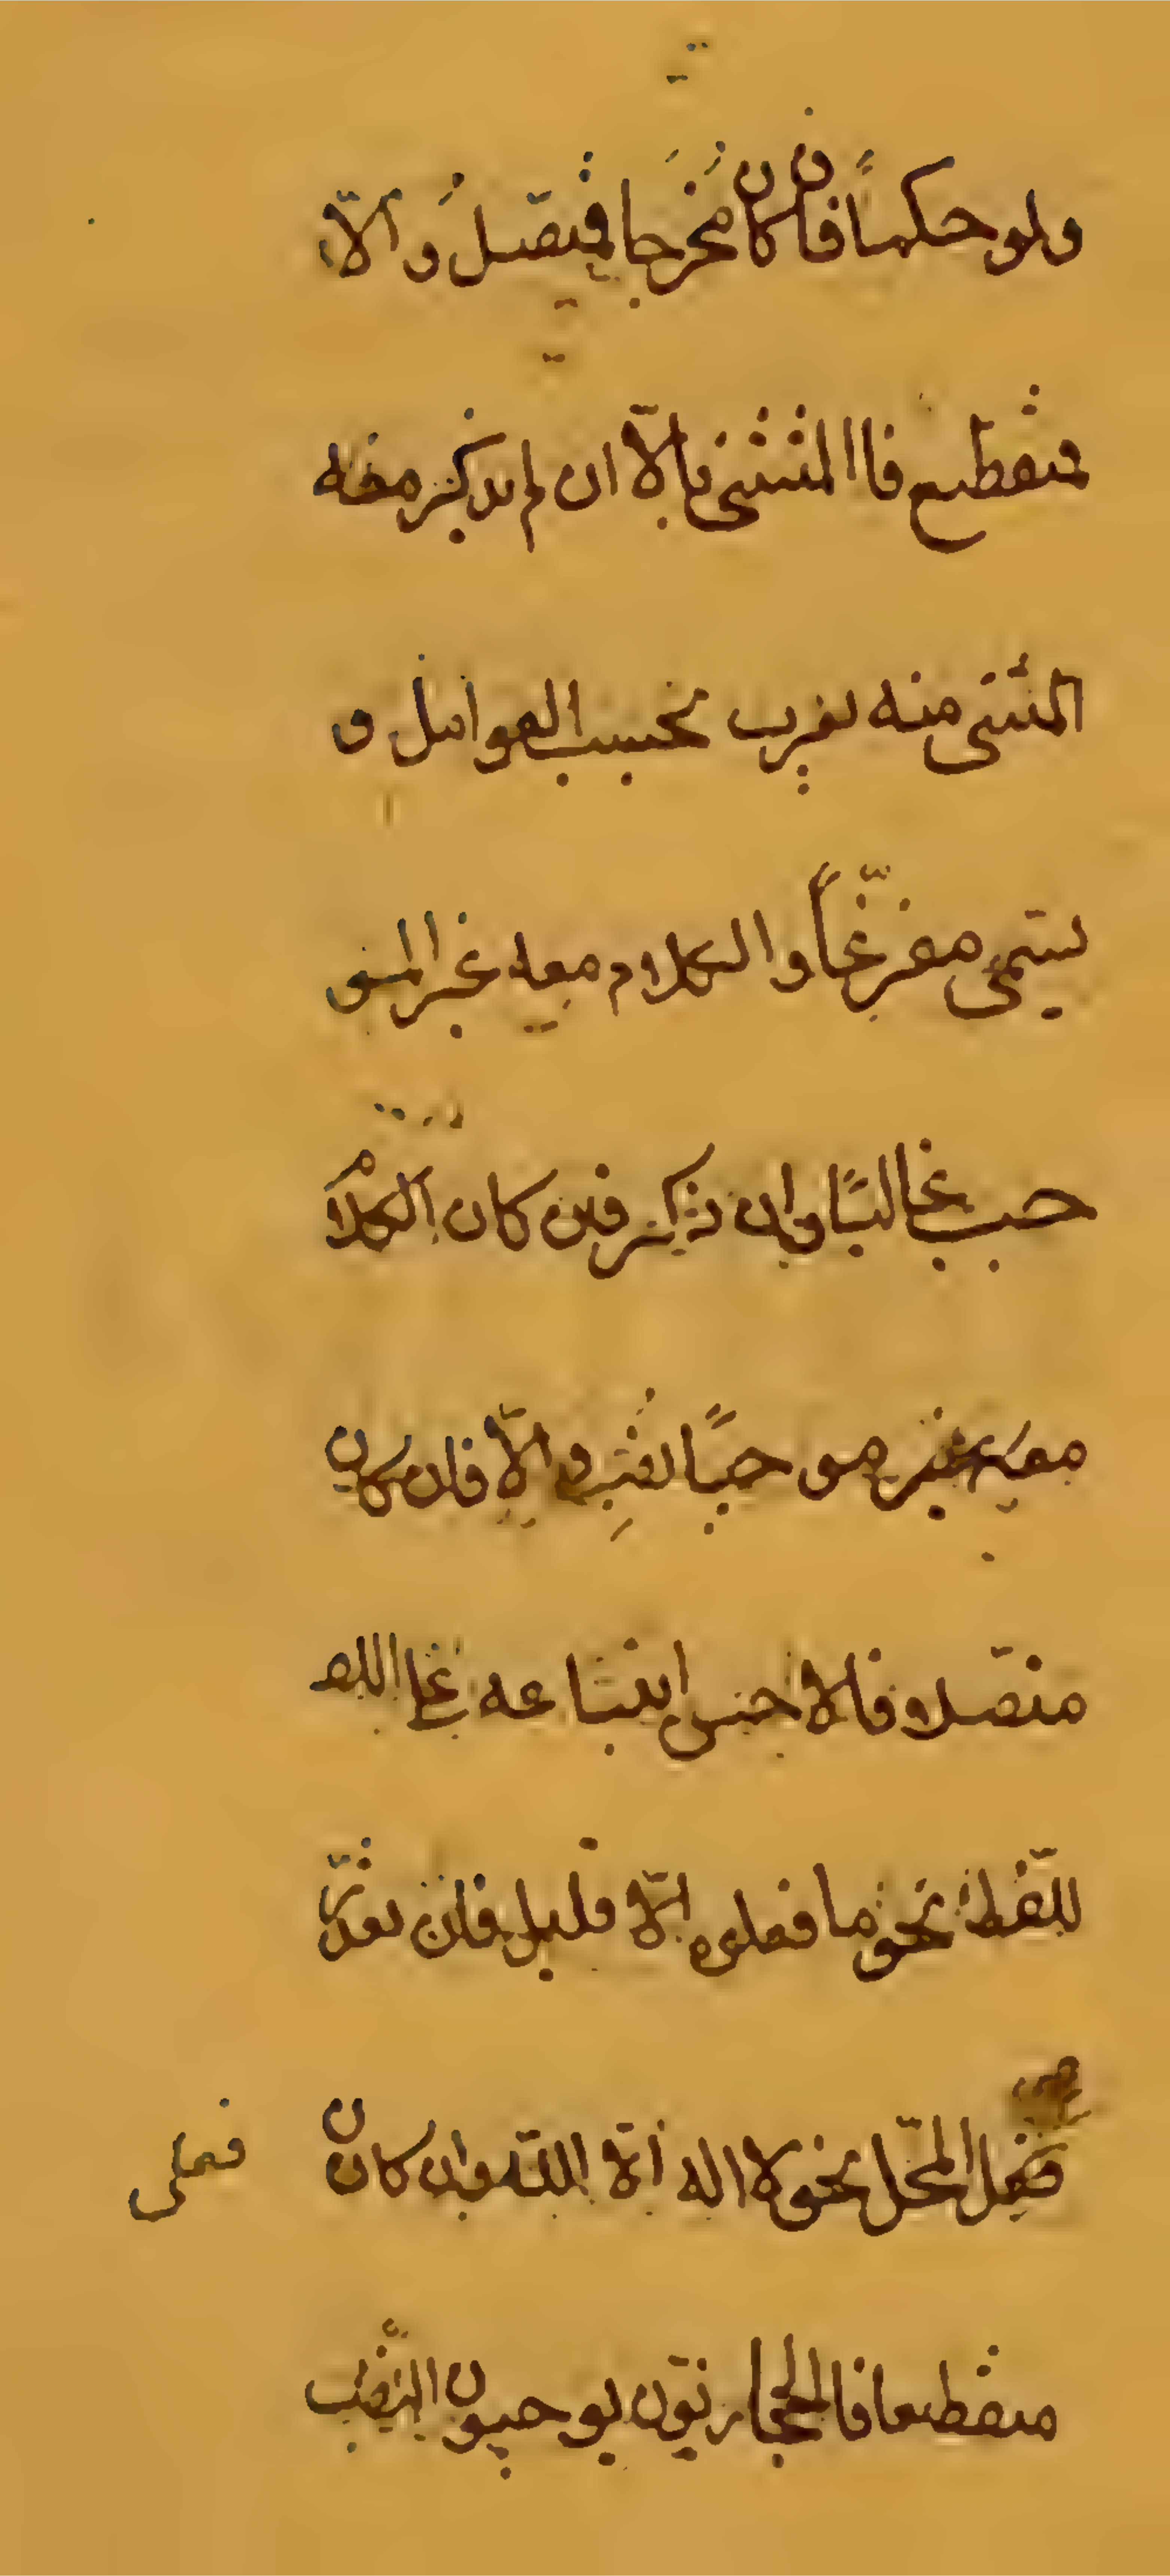 ولو حكماً فان كان مُخرجا فمتّصلُ والاّ
فمنقطيع فاالمثتثنى بالاّ ان لم يذكر معه
المثتنى منه يعرب بحسب العوامل و
يسّمى مفرّغاً والكلام معه غير المو
حب غالبًا وان ذكر فان كان الكلامُ
معه غير موجبًا نُصِب والاّ فان كان
متّصلا فالاحسن اتباعه على اللفـ
للّفظ نحو ما فعلوه الاّ قليل فان تعذّر
فعلى المحّل نحو لا اله الاّ اللّه وان كان
منقطعا فالحجازيّون يوجبون النّصب
فعلى